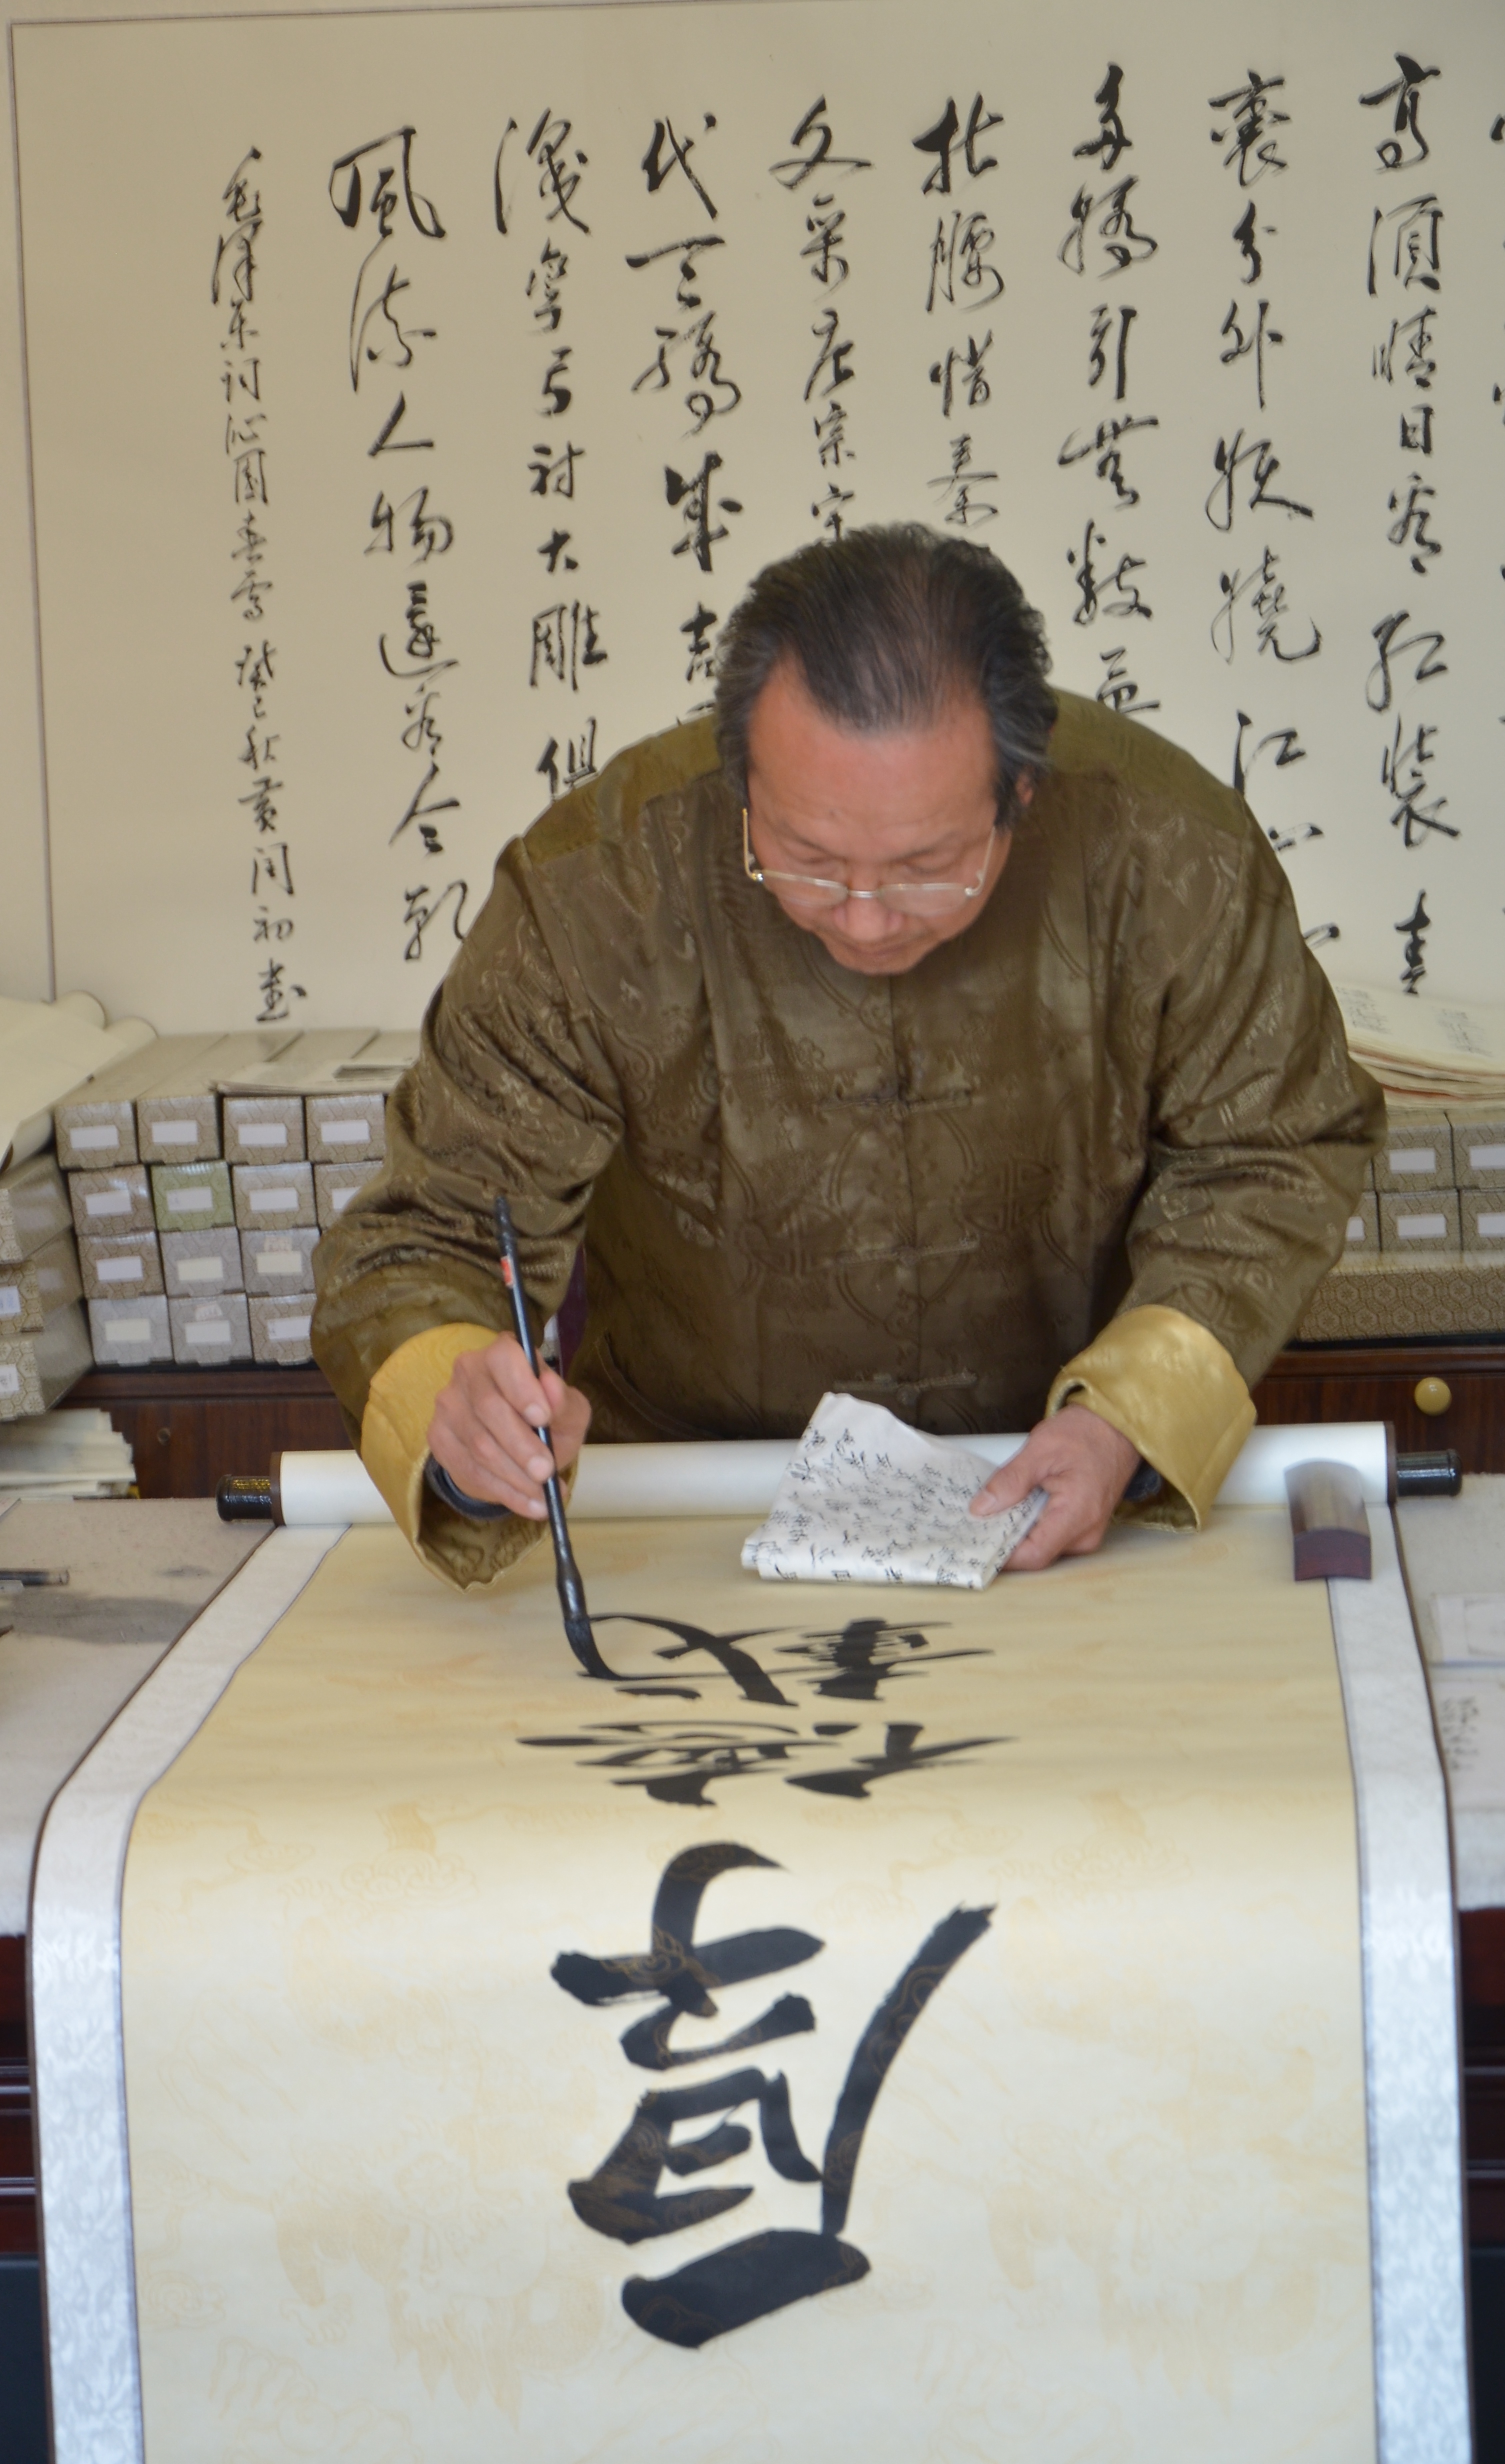 高須晴日看紅裝素
裹分外妖嬈江
多嬌引無數英
折腰惜秦
文采唐宗宋
代天驕成吉
識彎弓射大雕俱
風流人物還看今朝
毛澤東詞沁園春雪 癸巳秋黃初書
厚德載